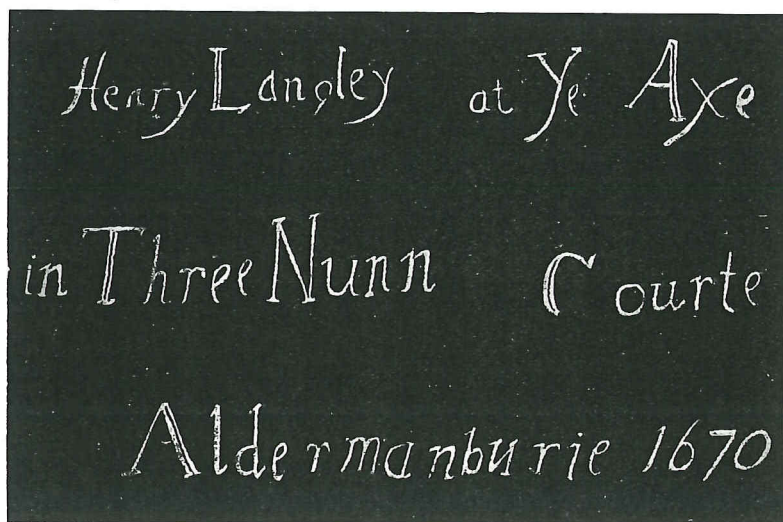 Henry Langley at Ye Axe
in Three Nunn Courte
Aldermanburie 1670